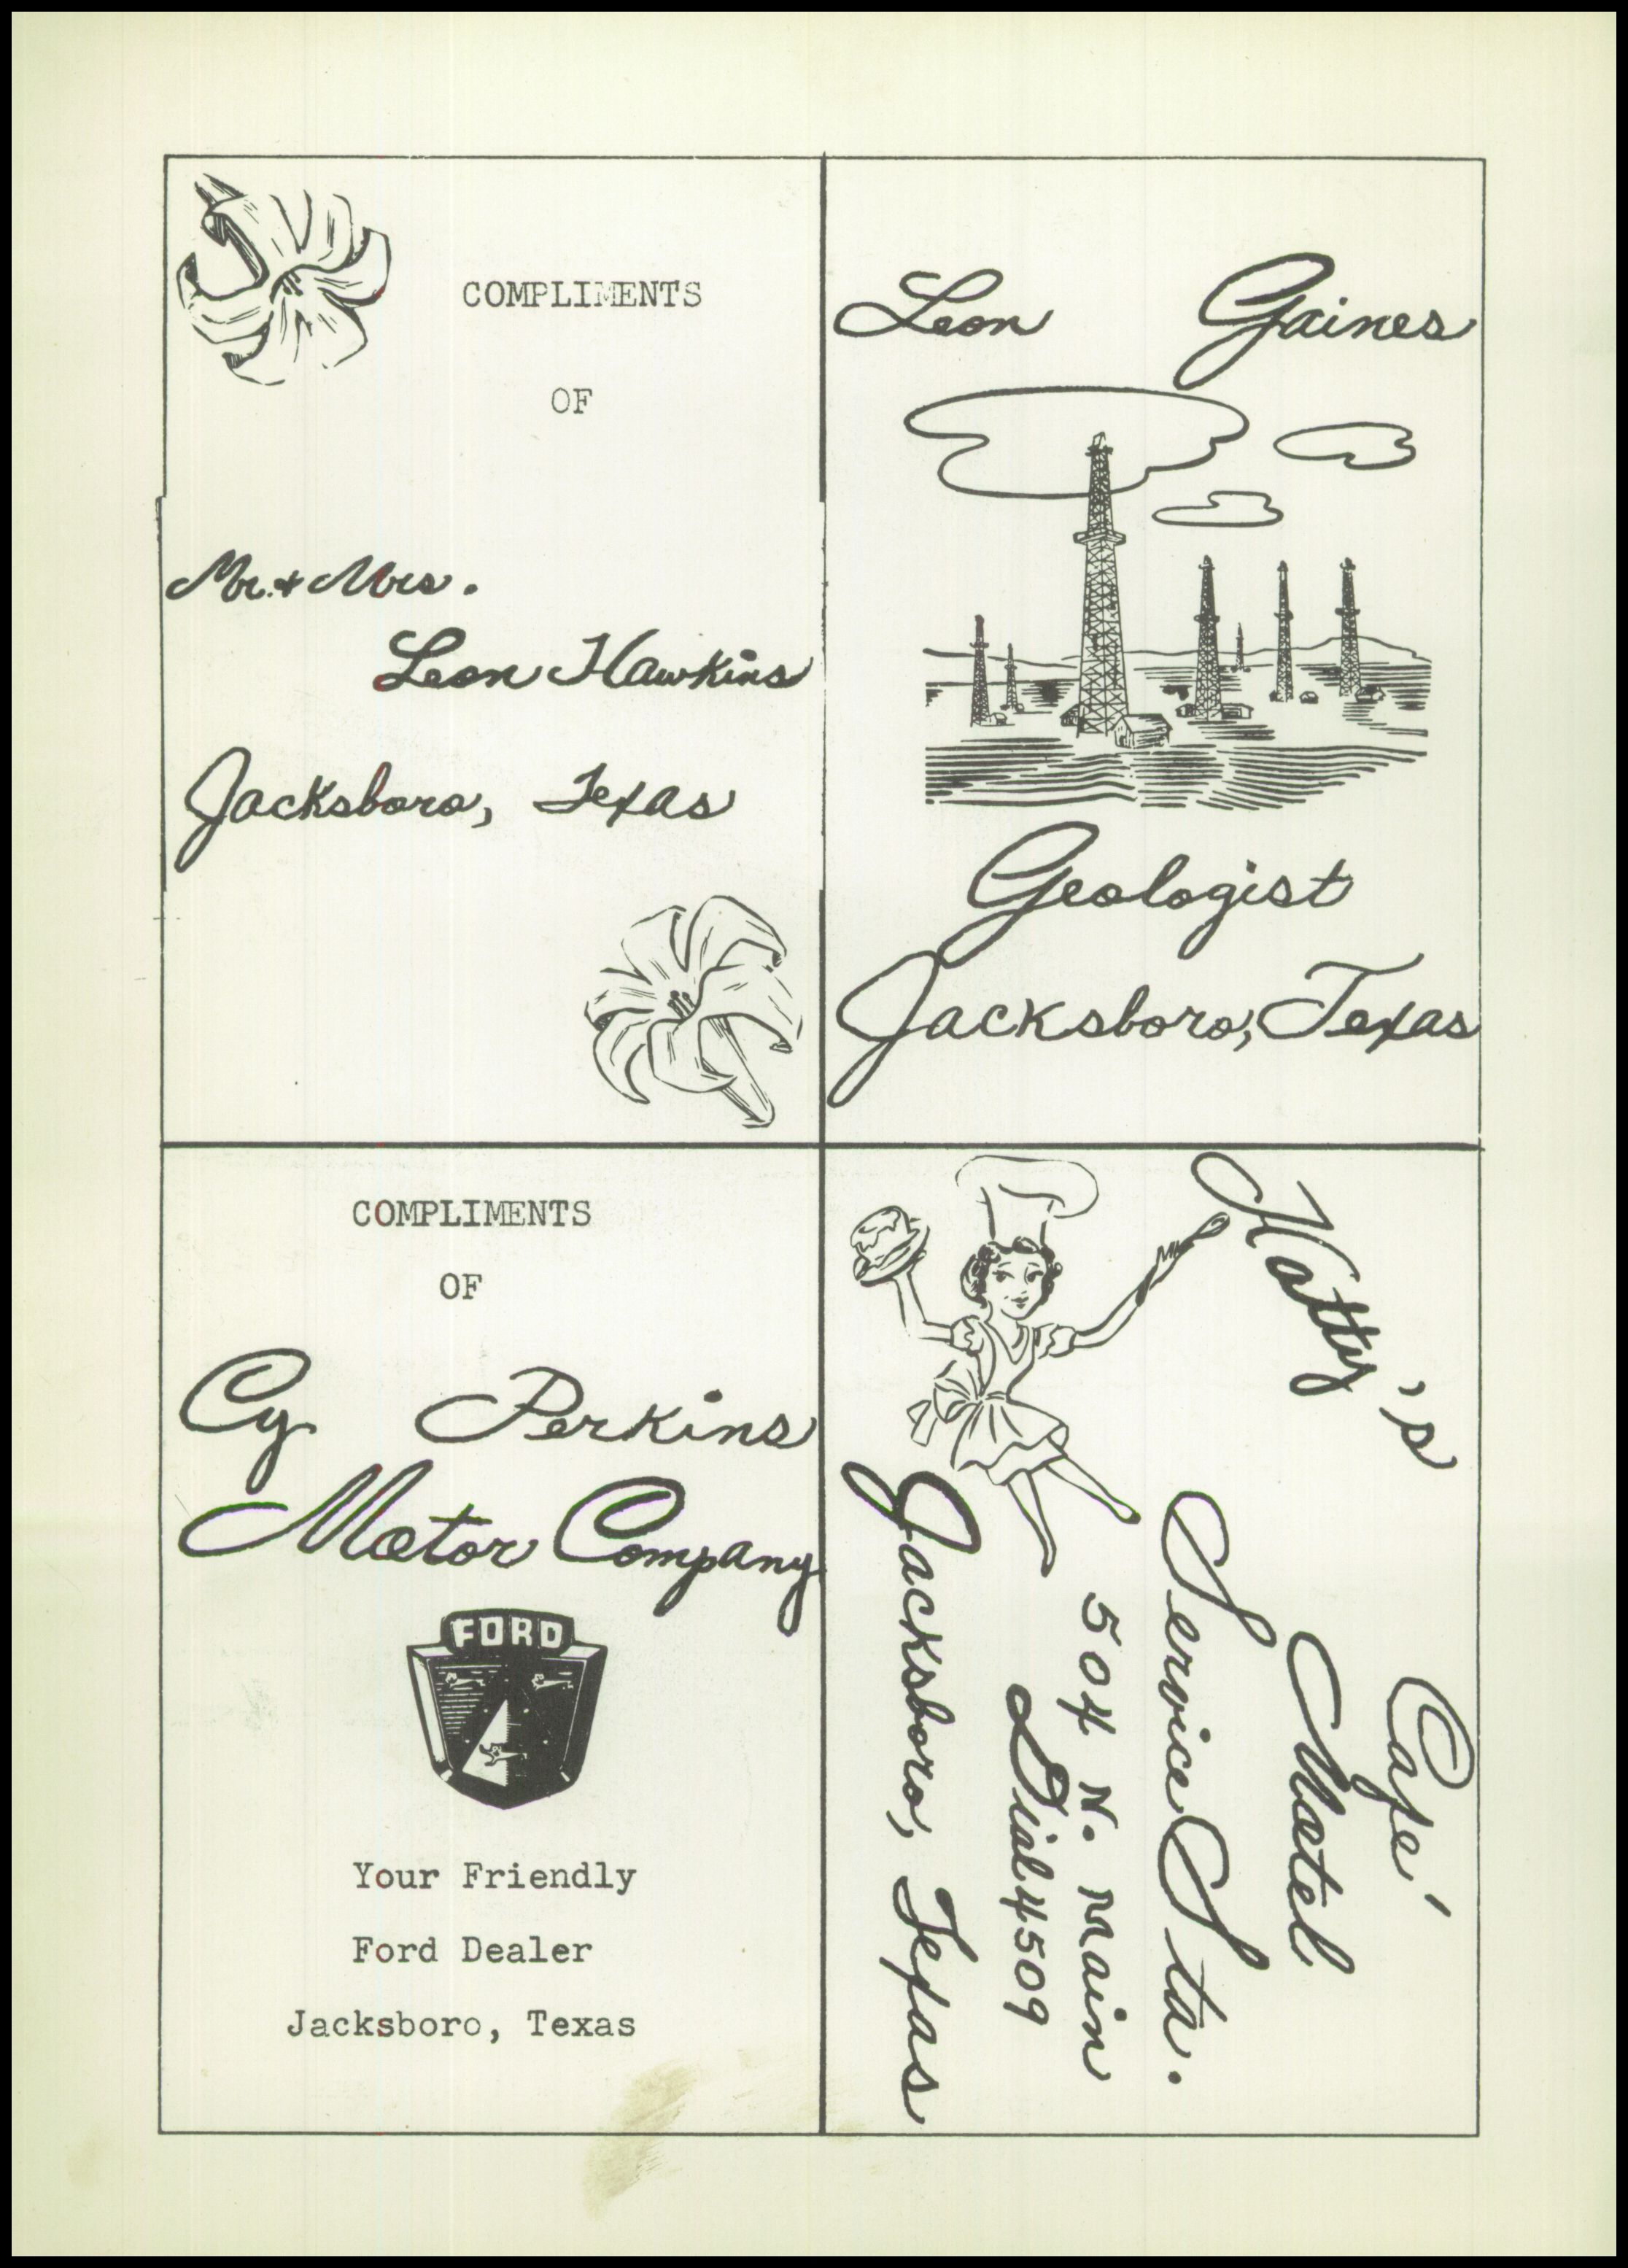 COMPLIMENTS
OF
Mr. & Mrs.
Leon Hawkins
Jacksboro, Texas
Leon Gaines
Geologist
Jacksboro, Texas
COMPLIMENTS
OF
Cy Perkins
Motor Company
FORD
Your Friendly
Ford Dealer
Jacksboro, Texas
Hatty's
Cafe'
Motel
Service Sta.
504 N. Main
Dial 4509
Jacksboro, Texas